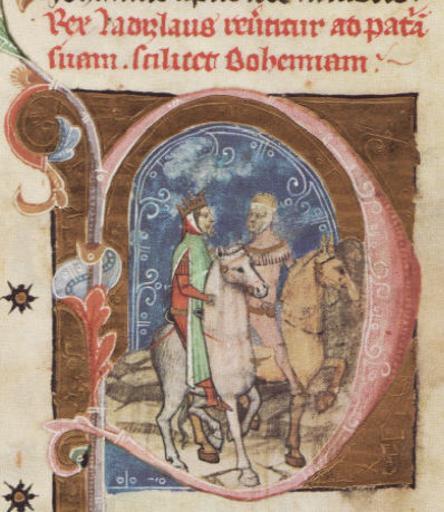 Rex ladizlaus reũtitur ad patã
suam . scilicet Bohemiam :~